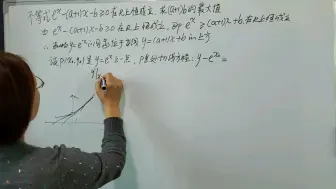 不等式 eˣ-(a+1)x-b≥0在R上恒成立,求(a+1)b的最大值
∵ eˣ-(a+1)x-b≥0在R上恒成立,即 eˣ≥(a+1)x+b在R上恒成立
∴ y=eˣ的图象位于直线 y=(a+1)x+b的上方
设P(x₀,y₀)是 y=eˣ上一点,P点处切线方程:y-eˣ⁰=
y